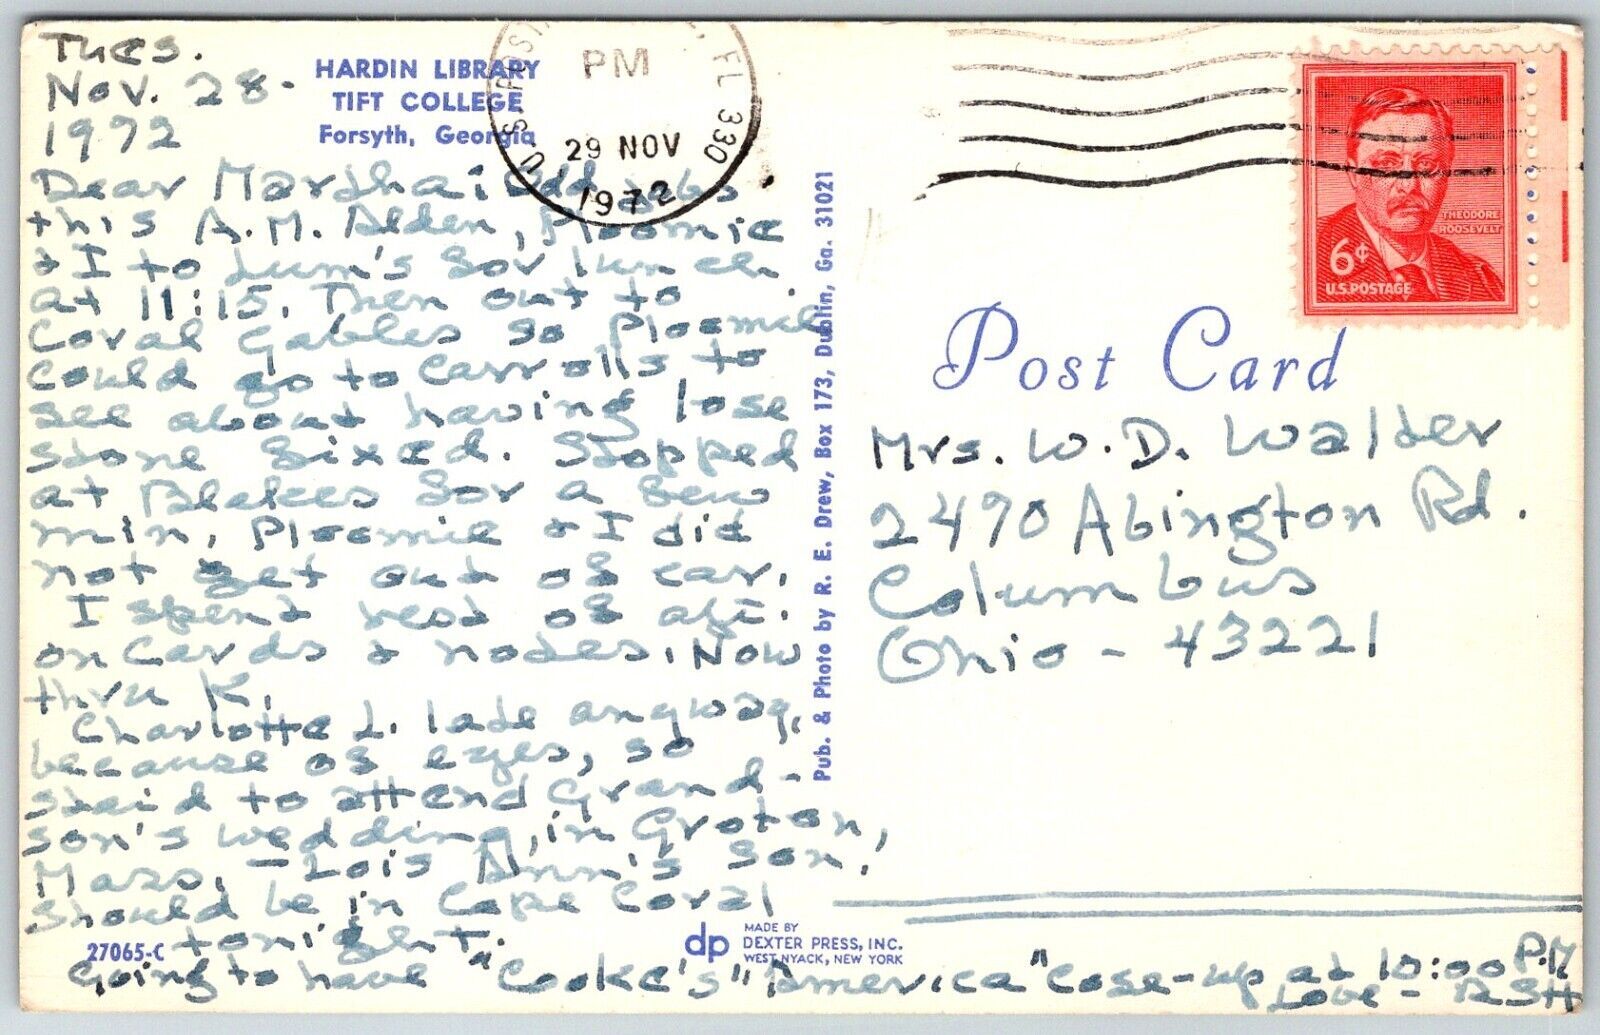 Tues.
Nov. 28-
1972
HARDIN LIBRARY
TIFT COLLEGE
Forsyth, Georgia
U.S. POST
PM
FL 330
29 NOV
1972
THEODORE
ROOSEVELT
6¢
U.S. POSTAGE
Dear Martha: Odd
this A.M. Alden, Ploomie
& I to Lum's for lunch
at 11:15. Then out to
Coral Gables so Ploomie
could go to Carrolls to
see about having lose
stone fixed. Stopped
at Blakes for a few
min, Ploomie & I did
not get out of car.
I spent rest of aft.
on cards & notes. Now
thru K.
Charlotte L. late anyway,
because of eyes, so
staid to attend Grand-
son's wedding, in Groton,
Mass, - Lois Ann's son,
should be in Cape Coral
tonight.
Going to have "Cooke's" "America" cose-up at 10:00 P.M
Love - RSH
Pub. & Photo by R. E. Drew, Box 173, Dublin, Ga. 31021
Post Card
Mrs. W. D. Walter
2490 Abington Rd.
Columbus
Ohio - 43221
27065-C
dp
MADE BY
DEXTER PRESS, INC.
WEST NYACK, NEW YORK